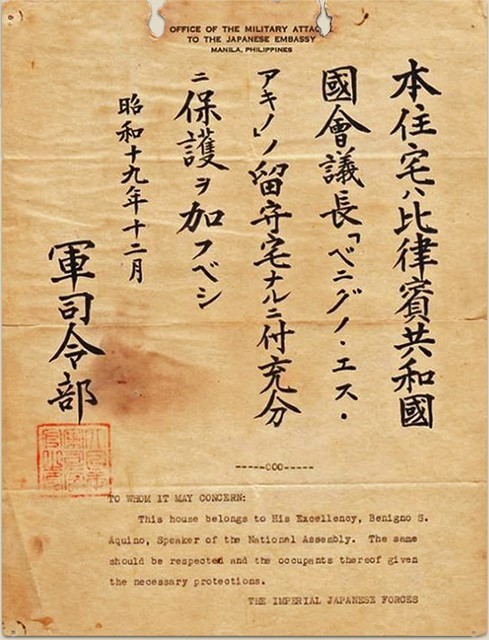 OFFICE OF THE MILITARY ATTAC
TO THE JAPANESE EMBASSY
MANILA, PHILIPPINES
本住宅ハ比律賓共和國
國會議長「ベニグノ・エス・
アキノ」ノ留守宅ナルニ付充分
ニ保護ヲ加フベシ
昭和十九年十二月
軍司令部
-----ooo-----
TO WHOM IT MAY CONCERN:
This house belongs to His Excellency, Benigno S.
Aquino, Speaker of the National Assembly. The same
should be respected and the occupants thereof given
the necessary protections.
THE IMPERIAL JAPANESE FORCES